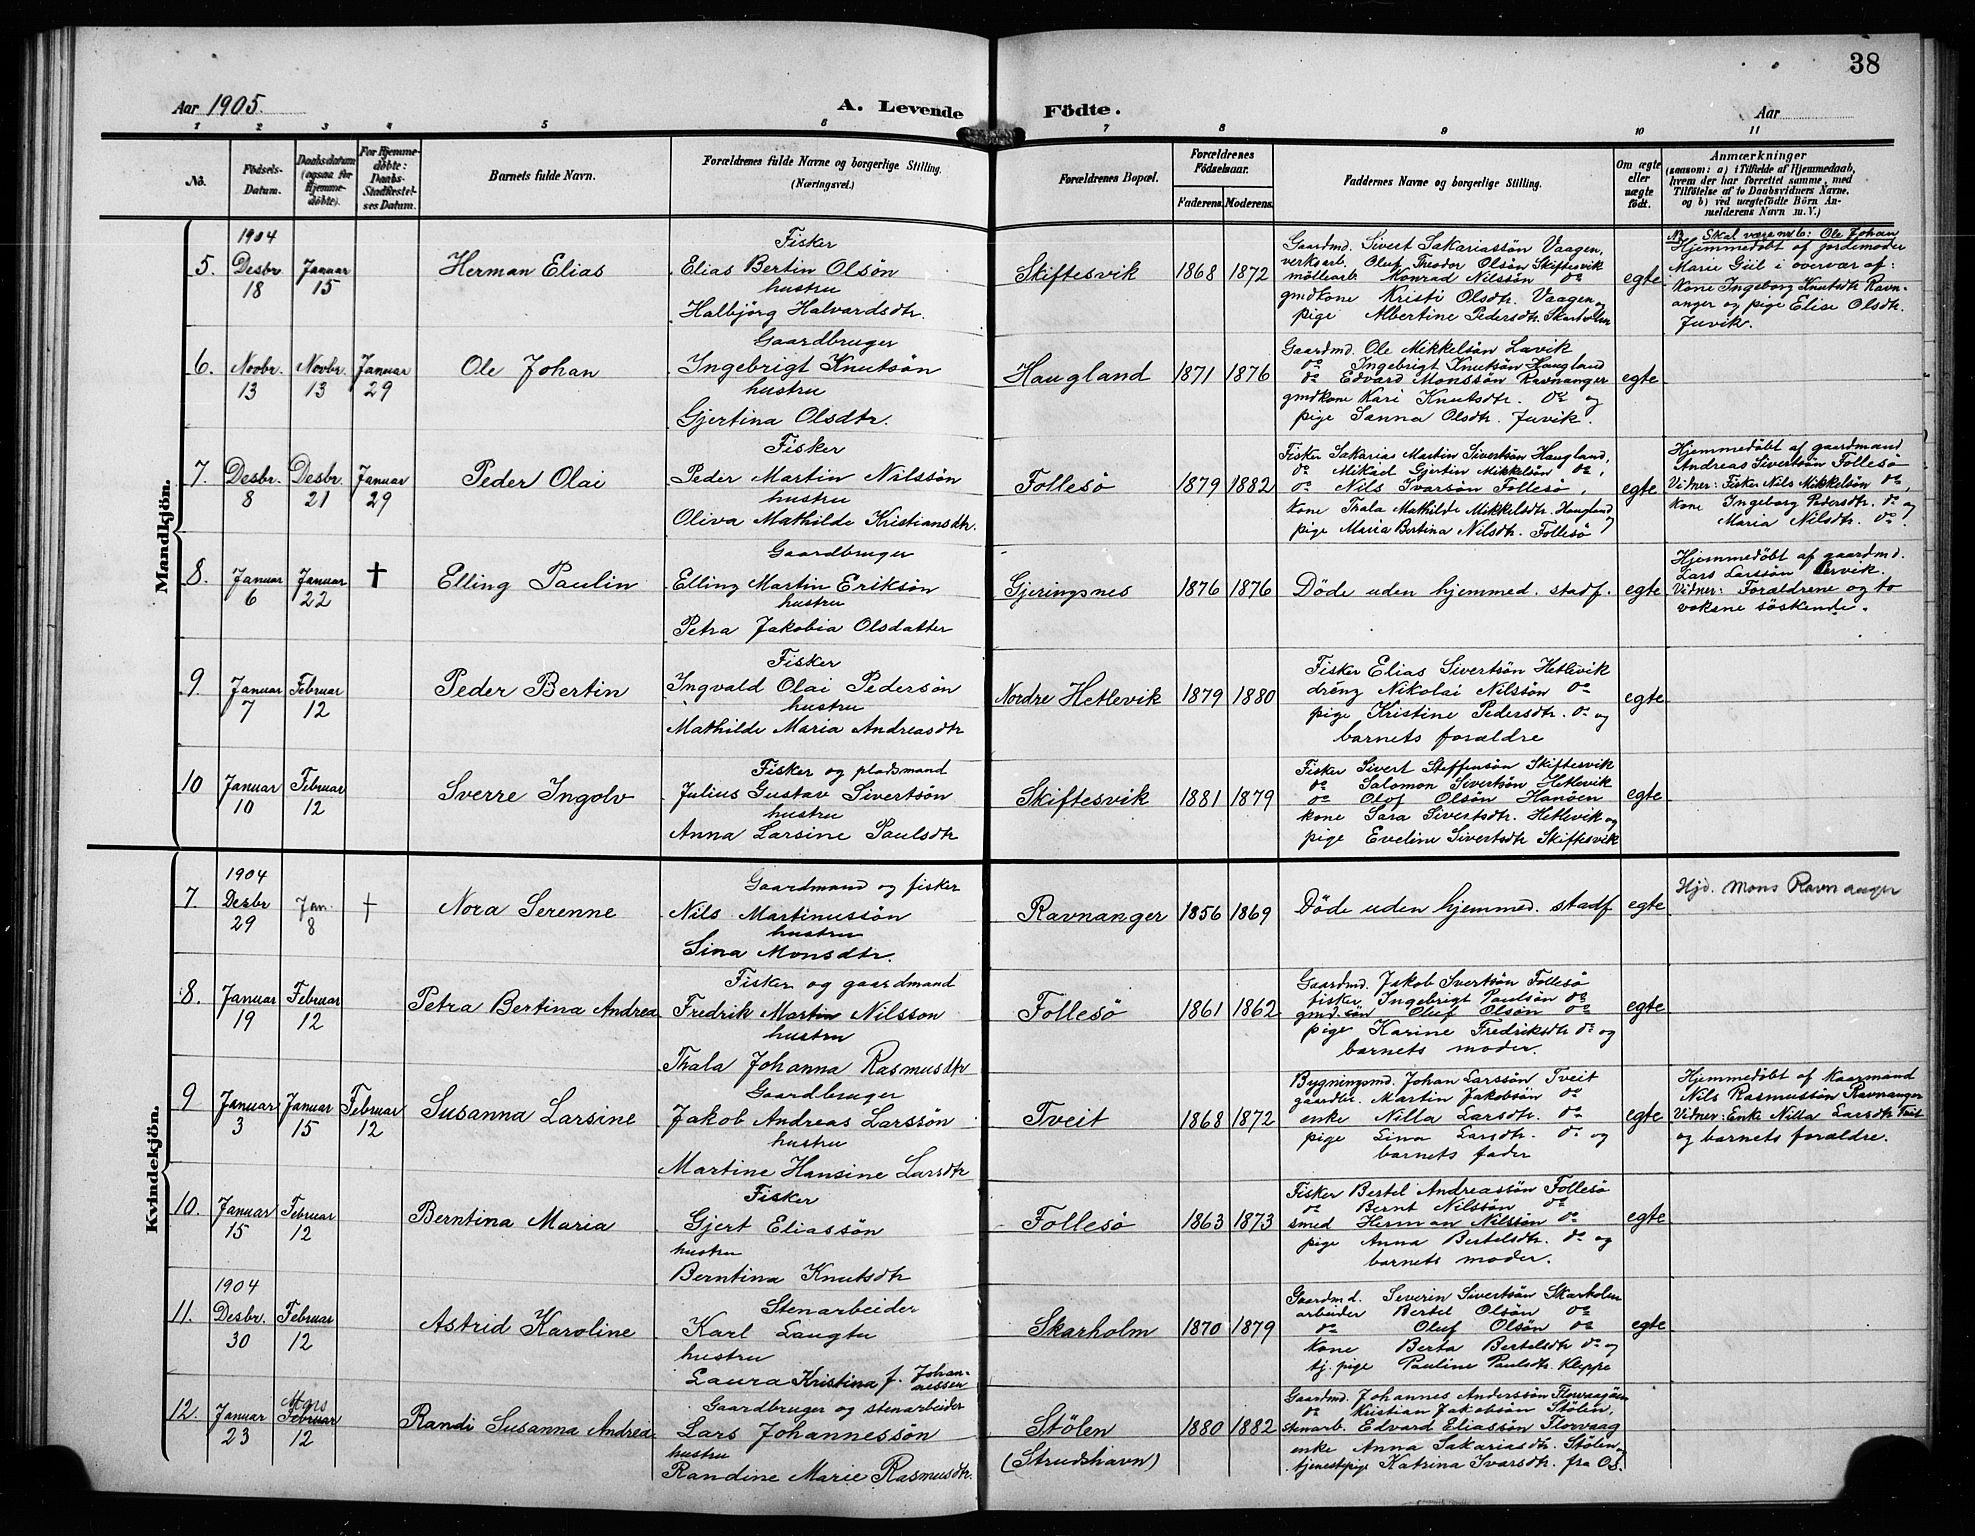 38
Aar 1905.
A. Levende Födte.
Aar
1 2 3 4 5 6 7 8 9 10 11
No.
Födsels-Datum.
Daabsdatum (ogsaa for Hjemmedöbte).
For Hjemmedöbte: Daabs-Stadfæstelses Datum.
Barnets fulde Navn.
Forældrenes fulde Navne og borgerlige Stilling.
(Næringsvei.)
Forældrenes Bopæl.
Forældrenes Födselsaar.
Faderens. Moderens.
Faddernes Navne og borgerlige Stilling.
Om ægte eller uægte födt.
Anmærkninger
(saasom: a) i Tilfælde af Hjemmedaab, hvem der har forrettet samme, med Tilföielse af to Daabsvidners Navne, og b) ved uægtefödte Börn Anmelderens Navn m. V.)
Mandkjön.
5. 1904 Desbr 18 Januar 15 Herman Elias
Fisker
Elias Bertin Olsön
hustru
Halbjörg Halvardsdtr.
Skiftesvik 1868 1872
Gaardmd. Sivert Sakariassön Vaagen,
verksarb. Oluf Theodor Olsön Skiftesvik
möllearb. Konrad Nilssön do
gmdkone Kristi Olsdtr. Vaagen og
pige Albertine Pedersdtr. Skarholm
egte
NB. Skal være nr 6: Ole Johan
Hjemmedöbt af jordemoder
Marie Giil i overvær af:
Kone Ingeborg Knutsdtr Ravn-
anger og pige Elise Olsdtr.
Juvik.
6. Novbr. 13 Novbr. 13 Januar 29 Ole Johan
Gaardbruger
Ingebrigt Knutsön
hustru
Gjertina Olsdtr.
Haugland 1871 1876
Gaardmd. Ole Mikkelsön Lavik
do Ingebrigt Knutsön Haugland
do Edvard Monssön Ravnanger
gmdkone Kari Knutsdtr. do og
pige Sanna Olsdtr. Juvik.
egte
7. Desbr. 8 Desbr. 21 Januar 29 Peder Olai
Fisker
Peder Martin Nilssön
hustru
Oliva Mathilde Kristiansdtr.
Follesö 1879 1882
Fisker Sakarias Martin Sivertsön Haugland,
do Mikal Gjertin Mikkelsön do,
do Nils Ivarsön Follesö,
kone Thala Mathilde Mikkelsdtr. Haugland
pige Maria Bertina Nilsdtr. Follesö
egte
Hjemmedöbt af gaardmand
Andreas Sivertsön Follesö
Vidner: Fisker Nils Mikkelsön do,
kone Ingeborg Pedersdtr. do og
Maria Nilsdtr. do.
8. Januar 6 Januar 22 † Elling Paulin
Gaardbruger
Elling Martin Eriksön
hustru
Petra Jakobia Olsdatter
Gjeringsnes 1876 1876 Döde uden hjemmed. stadf. egte
Hjemmedöbt af gaardmd.
Lars Larssön Ervik.
Vidner: Forældrene og to
voksne söskende.
9 Januar 7 Februar 12 Peder Bertin
Fisker
Ingvald Olai Pedersön
hustru
Mathilde Maria Andreasdtr
Nordre Hetlevik 1879 1880
Fisker Elias Sivertsön Hetlevik
dreng Nikolai Nilssön do
pige Kristine Pedersdtr. do og
barnets forældre
egte
10 Januar 10 Februar 12 Sverre Ingolv
Fisker og pladsmand
Julius Gustav Sivertsön
hustru
Anna Larsine Paulsdtr
Skiftesvik 1881 1879
Fisker Sivert Steffensön Skiftesvik
do Salomon Sivertsön Hetlevik
do Oluf Olsön Hanöen
kone Sara Sivertsdtr. Hetlevik og
pige Eveline Sivertsdtr Skiftesvik
egte
Kvindekjön.
7 1904 Desbr 29 Jan. 8 † Nora Serenne
Gaardmand og fisker
Nils Martinussön
hustru
Sina Monsdtr.
Ravnanger 1856 1869 Döde uden hjemmed. stadf egte
Hjd. Mons Ravnanger
8. Januar 19 Februar 12 Petra Bertina Andrea
Fisker og gaardmand
Fredrik Martin Nilsson
hustru
Thala Johanna Rasmusdtr
Follesö 1861 1862
Gaardmd. Jakob Svertsön Follesö
fisker Ingebrigt Paulsön do
gmd.sön Oluf Olsön do
pige Karine Fredriksdtr do og
barnets moder.
egte
9 Januar 3 Januar 15 Februar 12 Susanna Larsine
Gaardbruger
Jakob Andreas Larssön
hustru
Martine Hansine Larsdtr
Tveit 1868 1872
Bygningsmd. Johan Larssön Tveit
gaardbr. Martin Jakobsön do
enke Nilla Larsdtr. do
pige Lina Larsdtr. do og
barnets fader
egte
Hjemmedöbt af Kaarmand
Nils Rasmussön Ravnanger
Vidner: Enke Nilla Larsdtr Tveit
og barnets forældre.
10. Januar 15 Februar 12 Berntina Maria
Fisker
Gjert Eliassön
hustru
Berntina Knutsdtr
Follesö 1863 1873
Fisker Bertel Andreassön Follesö
do Bernt Nilssön do
smed Herman Nilssön do
pige Anna Bertelsdtr. do og
barnets moder.
egte
11. 1904 Desbr. 30 Februar 12 Astrid Karoline
Stenarbeider
Karl Laugtu
hustru
Laura Kristina f. Johan-
nessen
Skarholm 1870 1879
Gaardmd. Severin Sivertsön Skarholm
arbeider Bertel Olsön do
do Oluf Olsön do
kone Berta Bertelsdtr do og
tj. pige Pauline Paulsdtr. Kleppe
egte
12. Januar 23 Mars Februar 12 Randi Susanna Andrea
Gaardbruger og stenarbeider
Lars Johannessön
hustru
Randine Marie Rasmusdtr.
Stölen
(Strudshavn)
1880 1882
Gaardmd. Johannes Anderssön Florvaagöen
do Kristian Jakobsön Stölen,
stenarb. Edvard Eliassön Florvaag
enke Anna Sakariasdtr. Stölen og
tjenestpige Katrina Ivarsdtr. fra Os.